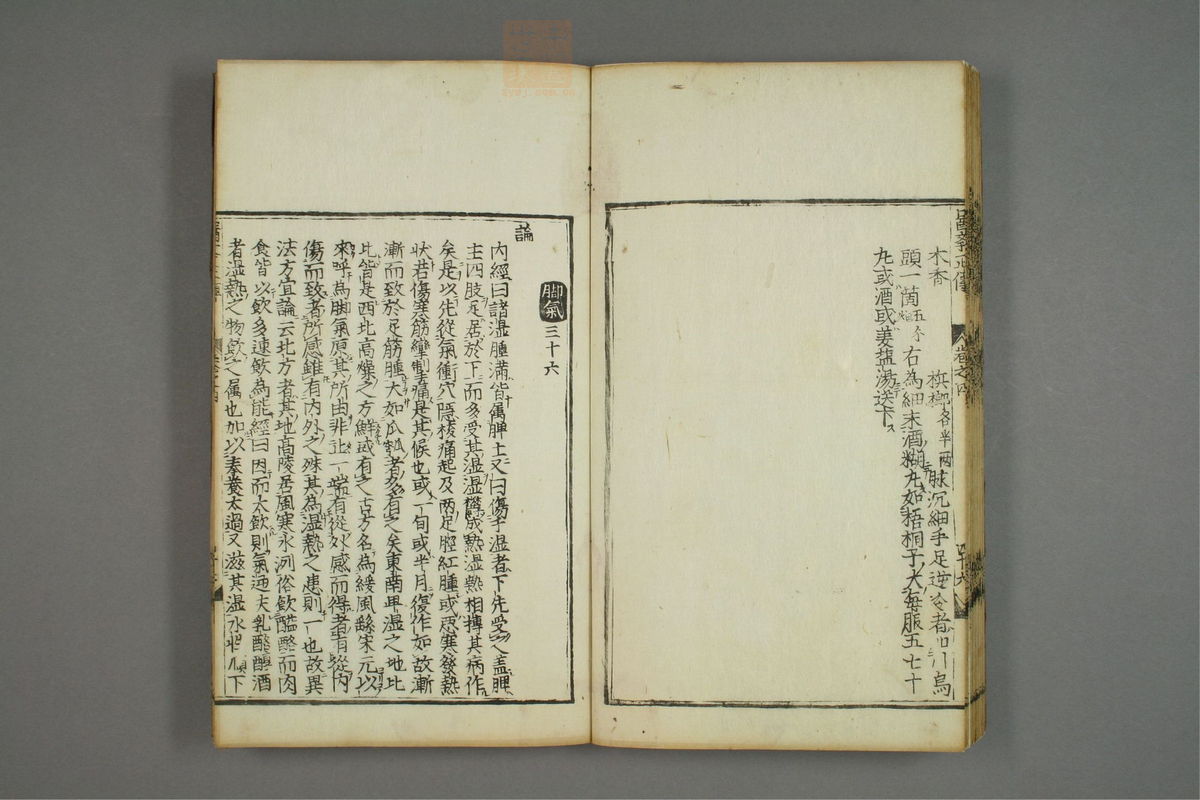 醫學正傳 卷之四 四十六
木香 檳榔各半兩 脉沉細手足逆冷者加川烏
頭一箇
右為細末酒糊丸如梧桐子大每服五七十
丸或酒或姜塩湯送下
脚氣三十六
論
內經曰諸湿腫滿皆属脾土又曰傷乎湿者下先受之盖脾
主四肢足居於下而多受其湿湿欝成熱湿熱相摶其病作
矣是以先從氣衝穴隱核痛起及两足脛紅腫或惡寒發熱
狀若傷寒筋攣掣痛是其候也或一旬或半月復作如故漸
漸而致於足筋腫大如瓜瓠者多有之矣東南卑湿之地比
比皆是西北高燥之方鮮或有之古方名為緩風繇宋元以
來呼為脚氣原其所由非止一端有從外感而得者有從内
傷而致者所感雖有内外之殊其為湿熱之患則一也故異
法方宜論云北方者其地高陵居風寒氷冽俗飲醢酪而肉
食皆以飲多速飲為能經曰因而太飲則氣逆夫乳酪醇酒
者湿熱之物飲之属也加以奉養太過又滋其湿水性順下